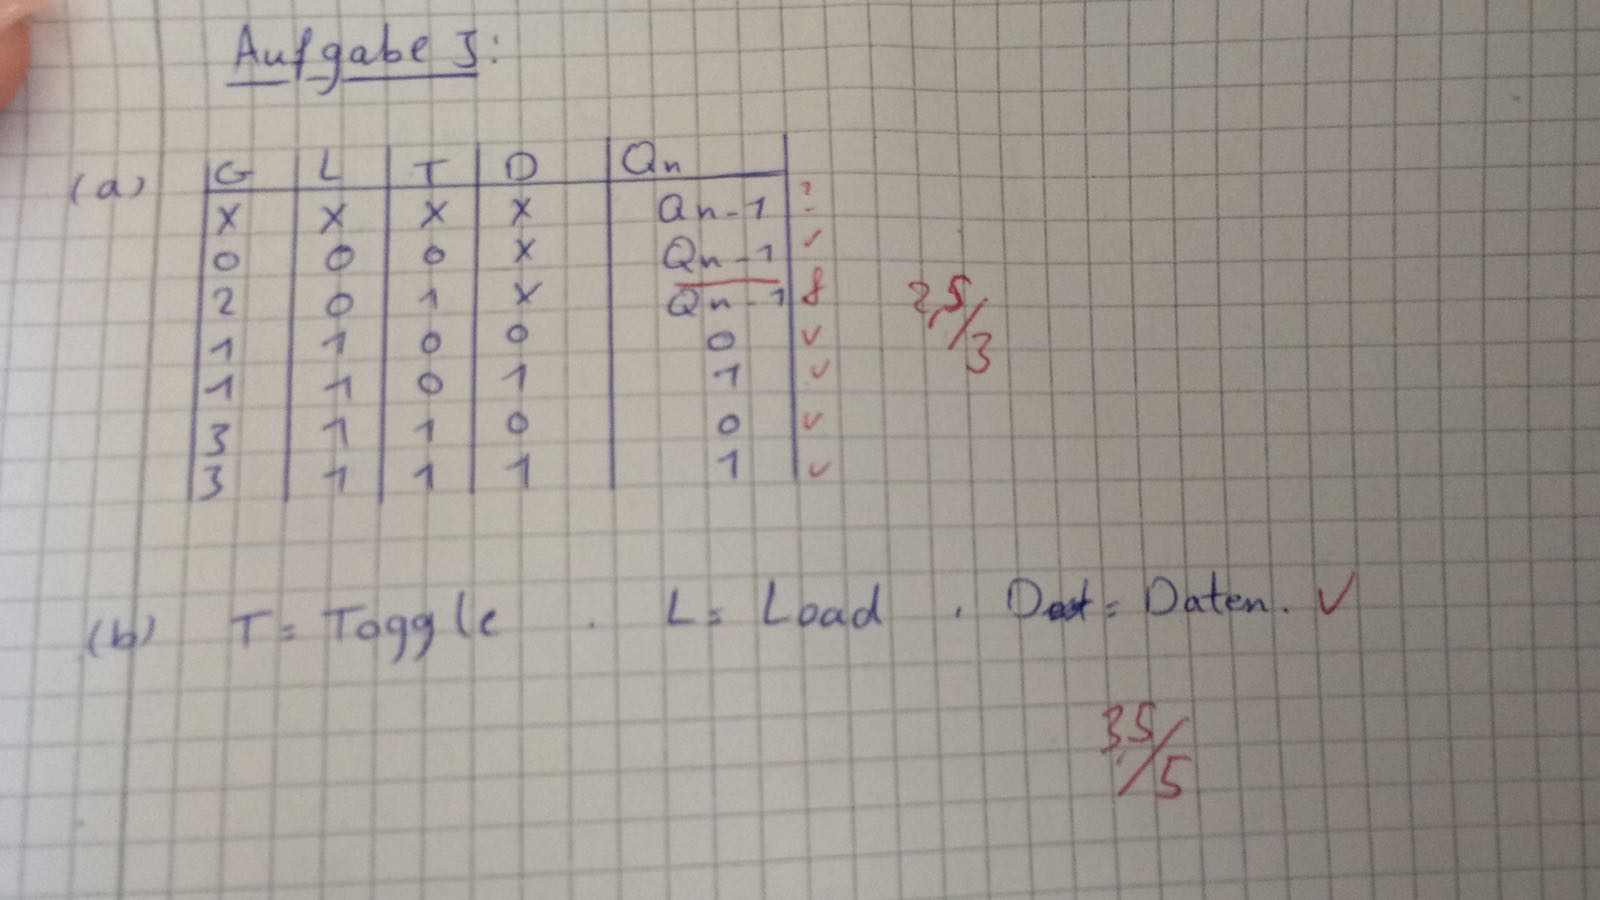 Aufgabe 3:
(a) G L T D Qn
X X X X Qn-1 ?
0 0 0 X Qn-1 ✓
2 0 1 X Qn-1 f
1 1 0 0 0 ✓
1 1 0 1 1 ✓
3 1 1 0 0 ✓
3 1 1 1 1 ✓
2,5/3
(b) T = Toggle . L = Load . D = Daten. ✓
3,5/5